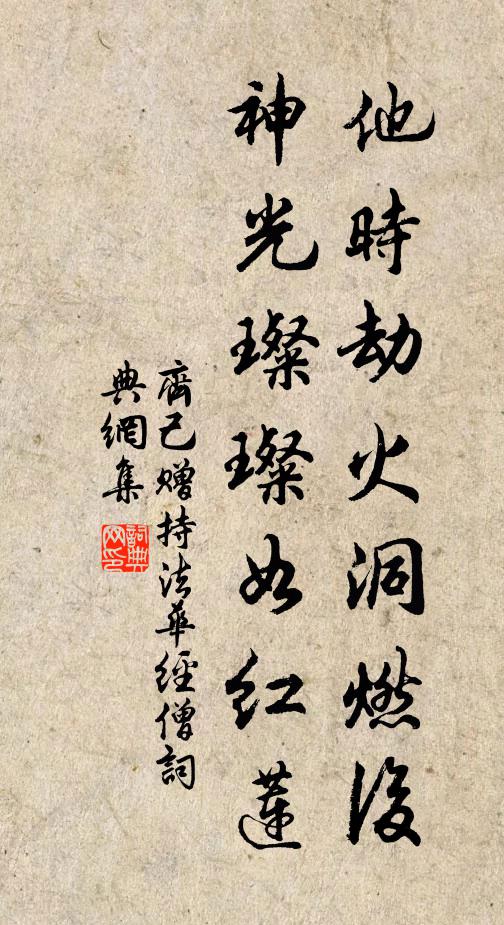 他時劫火洞燃後
神光璨璨如紅蓮
齊己贈持法華經僧詞
典網集
詞典網印